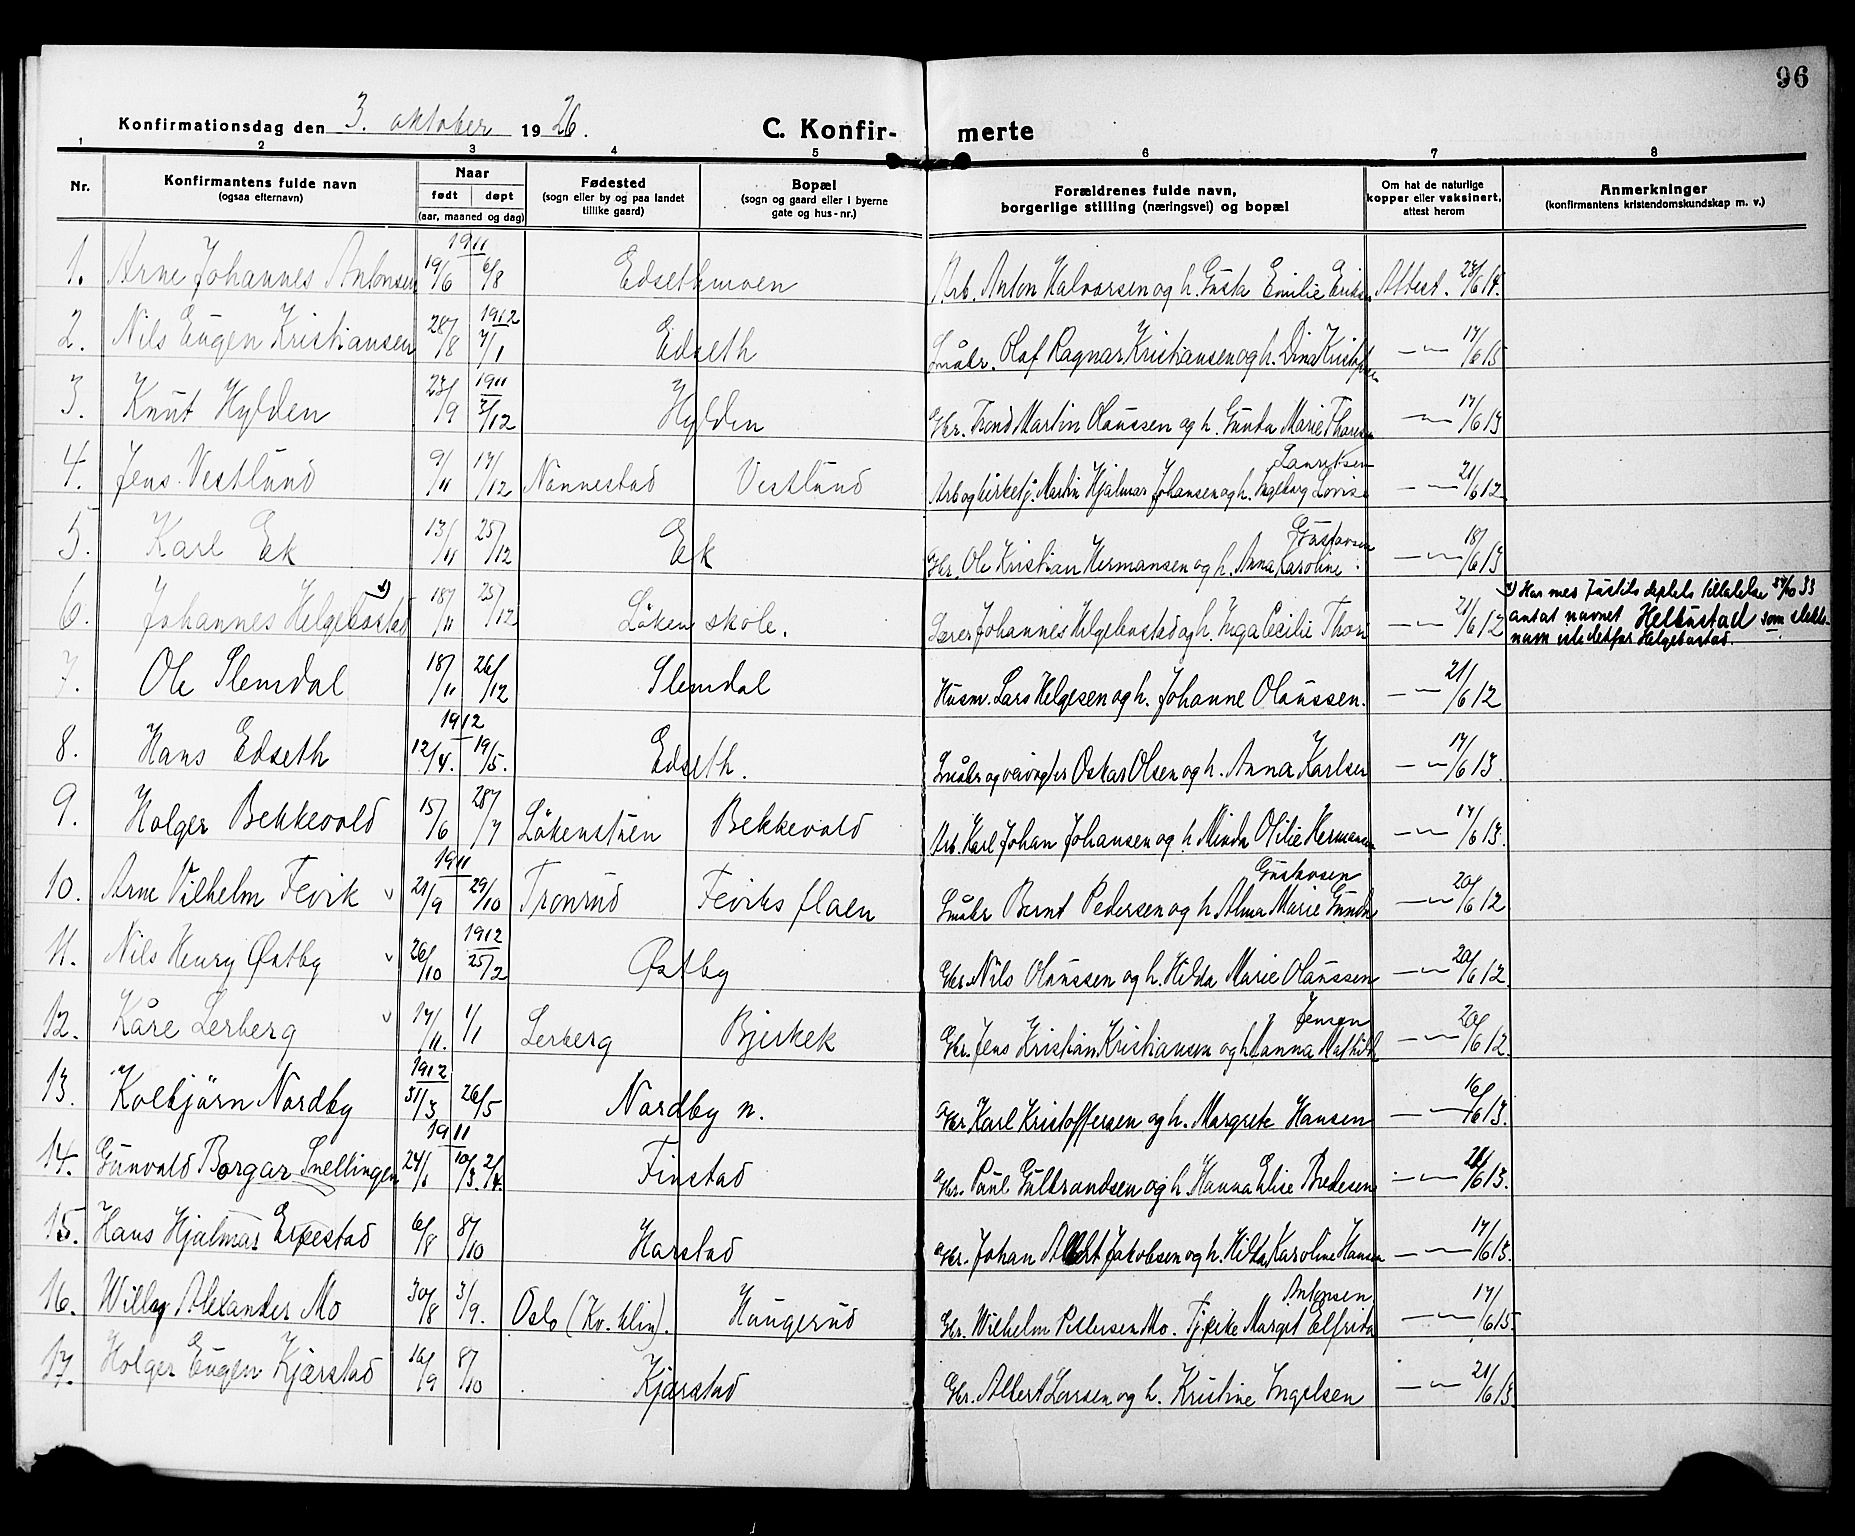 96
Konfirmationsdag den 3. oktober 1926.
C. Konfirmerte
1 2 3 4 5 6 7 8
Nr.
Konfirmantens fulde navn
(ogsaa efternavn)
Naar
født døpt
(aar, maaned og dag)
Fødested
(sogn eller by og paa landet
tillike gaard)
Bopæl
(sogn og gaard eller i byerne
gate og hus-nr.)
Forældrenes fulde navn,
borgerlige stilling (næringsvei) og bopæl
Om hat de naturlige
kopper eller vaksinert,
attest herom
Anmerkninger
(konfirmantens kristendomskundskap m. v.)
1911
1. Arne Johannes Antonsen 19/6 6/8 Edsethmoen Arb. Anton Halvorsen og h. Gusta Emilie Eriks. Attest. 23/6 14.
1912
2. Nils Eugen Kristiansen 28/8 7/1 Edseth Småbr. Olaf Ragnar Kristiansen og h. Dina Kristofsen —"— 17/6 15
1911
3. Knut Hylden 23/9 3/12 Hylden Gbr. Trond Martin Olaussen og h. Gunda Marie Thoresen —"— 17/6 13
Lauritsen
4. Jens Vestlund 9/11 17/12 Nannestad Vestlund Arb og kirketj. Martin Hjalmar Johansen og h. Ingeborg Lovise —"— 21/6 12
Gustavsen
5. Karl Ek 13/11 25/12 Ek Gbr. Ole Kristian Hermansen og h. Anna Karoline —"— 18/6 13
6. Johannes Helgebostad 1) 18/11 25/12 Løken skole. Lærer Johannes Helgebostad og h. Inga Cecilie Thon —"— 21/6 12
1) Har med Justits deptets tillatelse 33
antat navnet Helbustad som slekts-
navn istedetfor Helgebustad.
7. Ole Slemdal 18/11 26/12 Slemdal Husm. Lars Helgesen og h. Johanne Olaussen. —"— 21/6 12
1912
8. Hans Edseth 12/4. 19/5. Edseth. Småbr og veivogter Oskar Olsen og h. Anna Karlsen —"— 17/6 13.
9. Holger Bekkevold 15/6 28/7 Løkenstuen Bekkevold Arb. Karl Johan Johansen og h Minda Otilie Hermansen —"— 17/6 13.
1911
Gustavsen
10. Arne Vilhelm Fevik v 21/9 29/10 Tronrud Feviksflaen Småbr Bernt Pedersen og h Alma Marie Gunda —"— 20/6 12
1912
11. Nils Henry Østby v 26/10 25/2 Østby Gbr. Nils Olaussen og h. Hilda Marie Olaussen —"— 20/6 12.
Jensen
12. Kåre Lerberg v 17/11. 1/1 Lerberg Bjerkek Gbr. Jens Kristian Kristiansen og h Hanna Mathilde —"— 20/6 12
1912
13. Kolbjørn Nordby 31/3 26/5 Nordby n. Gbr Karl Kristoffersen og h. Margrete Hansen —"— 16/6 13.
1911
14. Gunvald Borgar Snellingen 24/1 10/3. 2/4. Finstad Gbr. Paul Gulbrandsen og h. Hanna Elise Bredesen —"— 21/6 13.
15. Hans Hjalmar Erpestad 6/8 8/10 Harstad Gbr. Johan Albert Jakobsen og h. Hilda Karoline Hansen —"— 17/6 13.
Antonsen
16. Willy Alexander Mo 30/8 3/9. Oslo (Kv. klin). Haugerud Gbr. Wilhelm Pettersen Mo. Tj.pike Margit Elfrida —"— 17/6 15.
17. Holger Eugen Kjærstad 16/9 8/10 Kjærstad Gbr. Albert Larsen og h. Kristine Ingelsen —"— 21/6 13.